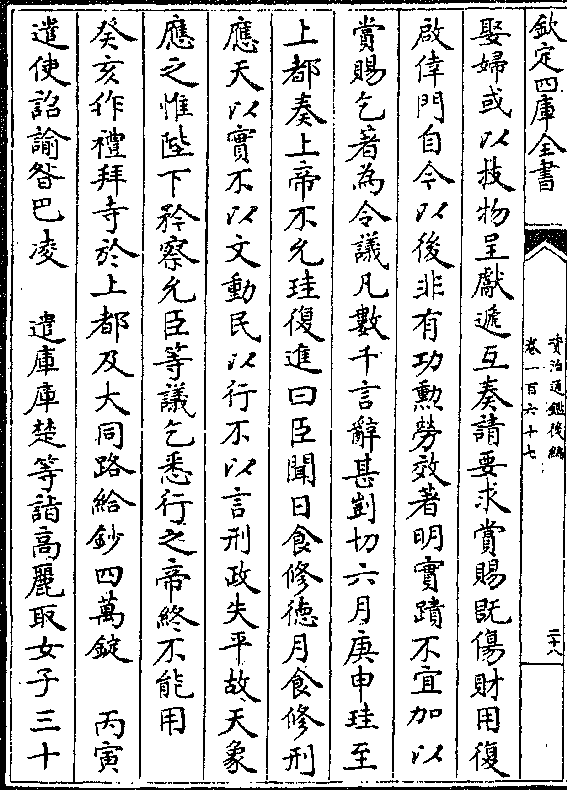 欽定四庫全書
資治通鑑後編
卷一百六十七
二十八
娶婦或以技物呈獻遞互奏請要求賞賜既傷財用復
啟倖門自今以後非有功勲勞效著明實蹟不宜加以
賞賜乞著為令議凡數千言辭甚剴切六月庚申珪至
上都奏上帝不允珪復進曰臣聞日食修徳月食修刑
應天以實不以文動民以行不以言刑政失平故天象
應之惟陛下矜察允臣等議乞悉行之帝終不能用
癸亥作禮拜寺於上都及大同路給鈔四萬錠　丙寅
遣使詔諭㫮巴凌　遣庫庫楚等詣高麗取女子三十